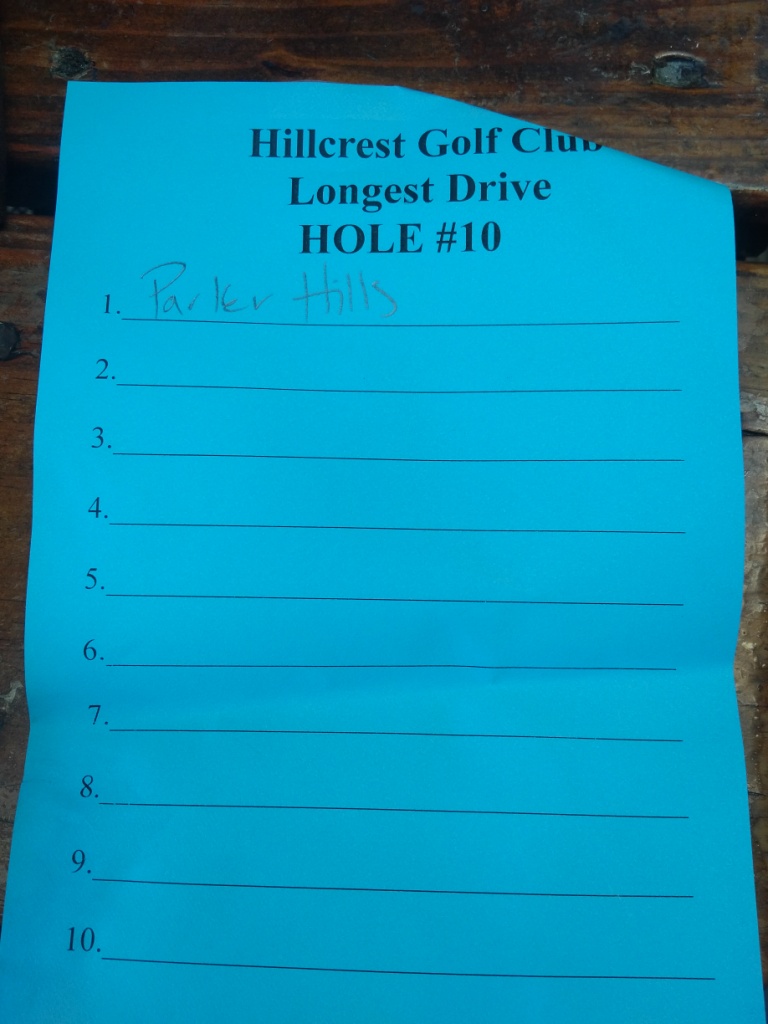 Hillcrest Golf Club
Longest Drive
HOLE #10
1. Parker Hills
2.
3.
4.
5.
6.
7.
8.
9.
10.